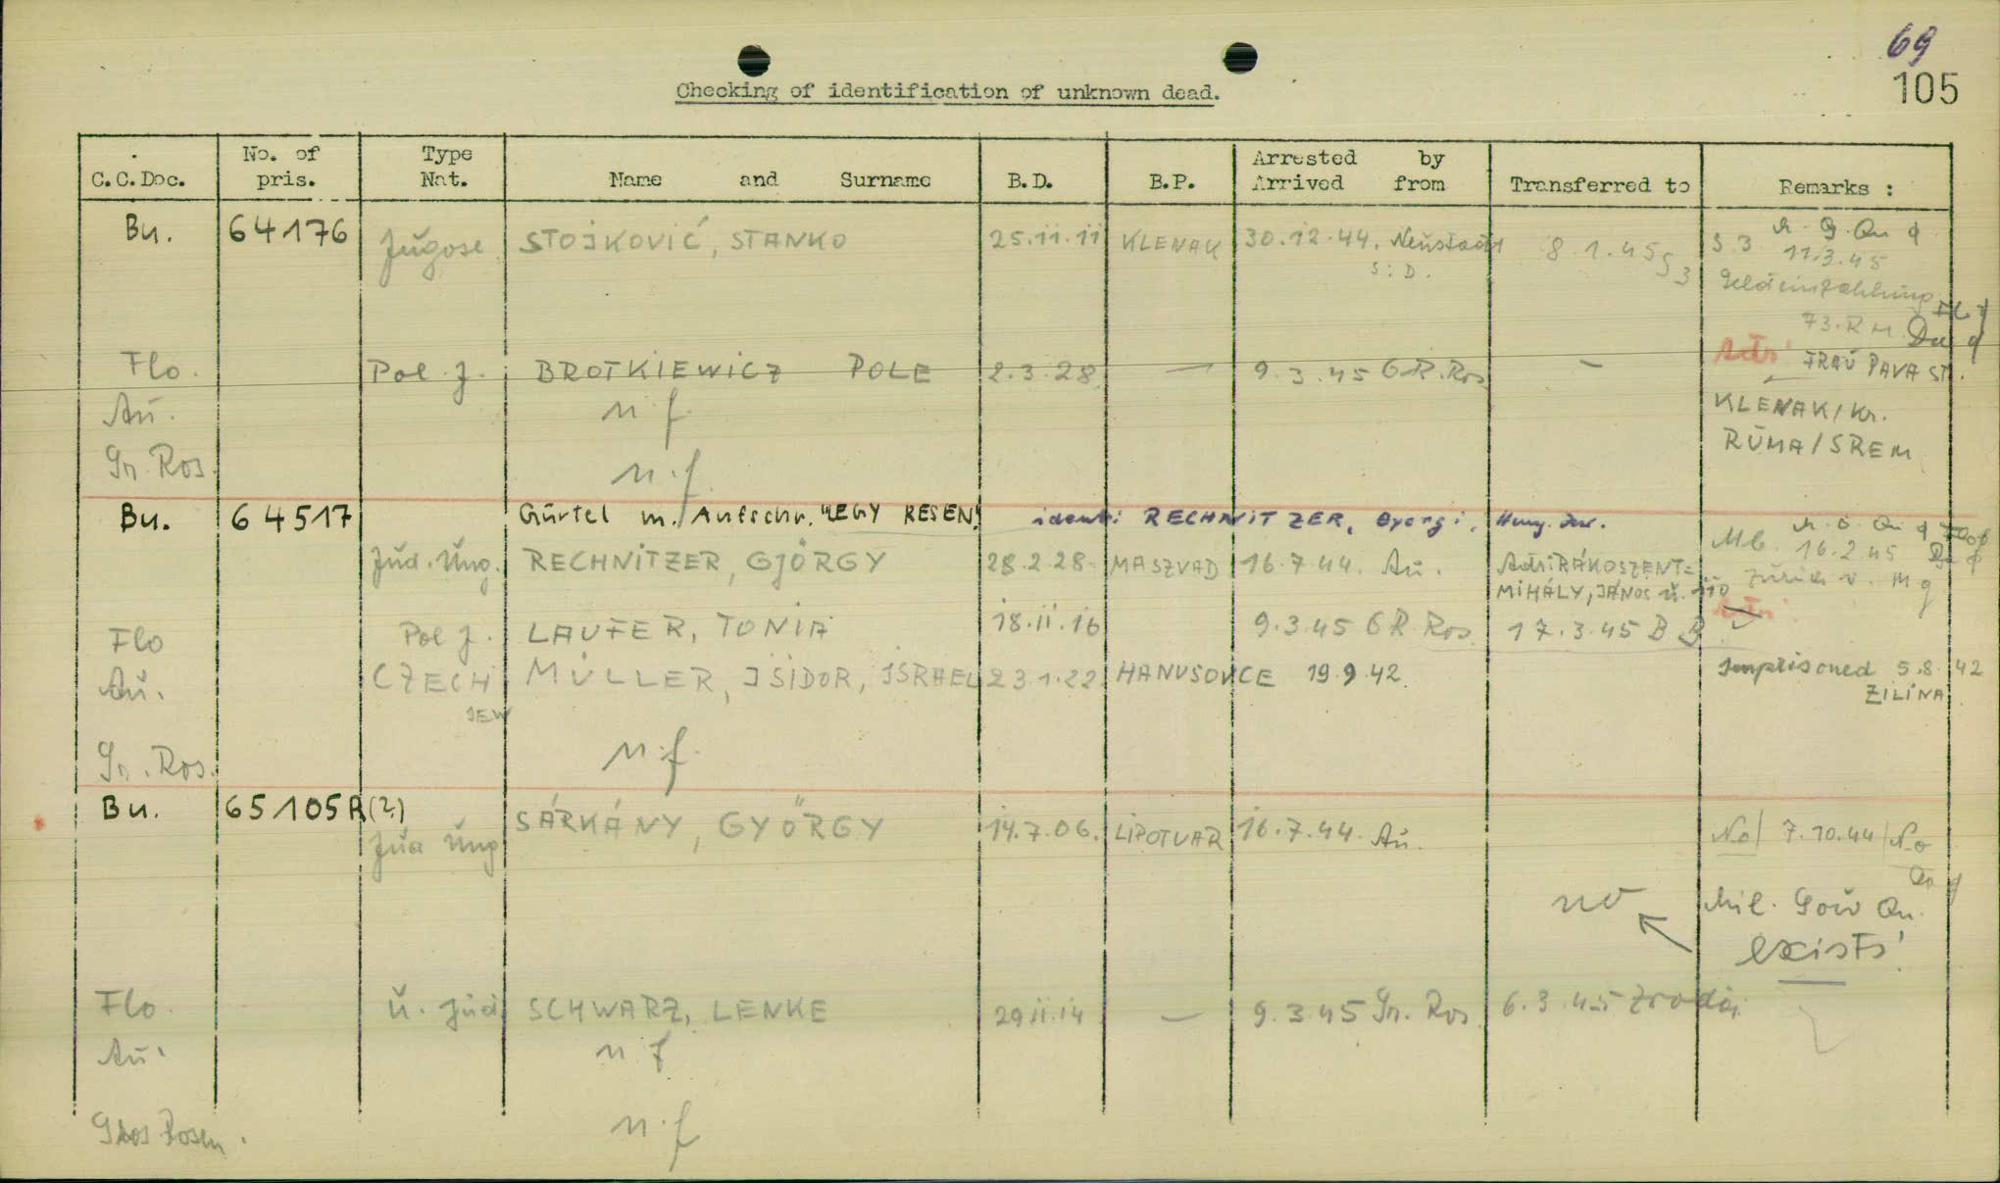 69
105
Checking of identification of unknown dead.
C.C.Doc. No. of pris. Type Nat. Name and Surname B.D. B.P. Arrested by Arrived from Transferred to Remarks :
Bu. 64176 Jugosl STOJKOVIĆ, STANKO 25.11.11 KLENAK 30.12.44. Neustadt 8.1.45 S3 S 3
S.D. 11.3.45
Geldeinzahlung
73.RM Du
Flo. Pol. J. BROTKIEWICZ POLE 2.3.28 — 9.3.45 GR.Ros — Adr: FRAU PAVA ST.
Au. n.f. KLENAK/Kr.
Gr. Ros. n.f. RUMA/SREM
Bu. 64517 Gürtel m. Aufschr. "LEGY RESEN!" ident: RECHNITZER, Györgi, Hung. Jew.
Jüd. Ung. RECHNITZER, GJÖRGY 28.2.28 MASZVAD 16.7.44. Au. Adr: RÁKOSZENT=
MIHÁLY, JÁNOS U. 110 16.2.45
Flo Pol J. LAUFER, TONIA 18.11.16 9.3.45 GR Ros. 17.3.45 B B
Au. CZECH JEW MÜLLER, ISIDOR, ISRAEL 23.1.22 HANUSOVCE 19.9.42. Imprisoned 5.8.42
ZILINA
Gr. Ros. n.f.
Bu. 65105 A(?)
Jüd Ung SÁRKÁNY, GYÖRGY 14.7.06. LIPOTVAR 16.7.44. Au. No/ 7.10.44/No
no Mil. Gov Qu.
exists!
Flo. U. Jüd SCHWARZ, LENKE 29.11.14 — 9.3.45 Gr. Ros 6.3.45 Zrodau
Au. n f
Gros Rosen. n.f